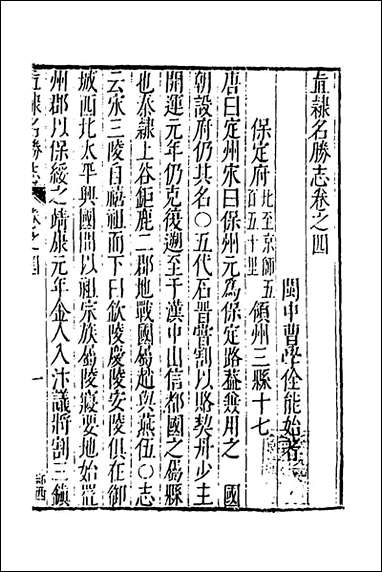 直隷名勝志卷之四
閩中曹學佺能始著
保定府 北至京師五百五十里 領州三縣十七
唐曰定州宋曰保州元爲保定路蓋兼用之 國
朝設府仍其名○五代石晉嘗割以賂契丹少主
開運元年仍克復遡至于漢中山信都國之爲縣
也泰隷上谷鉅鹿二郡地戰國屬趙與燕伍○志
云宋三陵自禧祖而下曰欽陵慶陵安陵俱在御
城西北太平興國間以祖宗族屬陵寢要地始置
州郡以保綏之靖康元年金人入汴議將割三鎮
直隷名勝志 卷之四 一